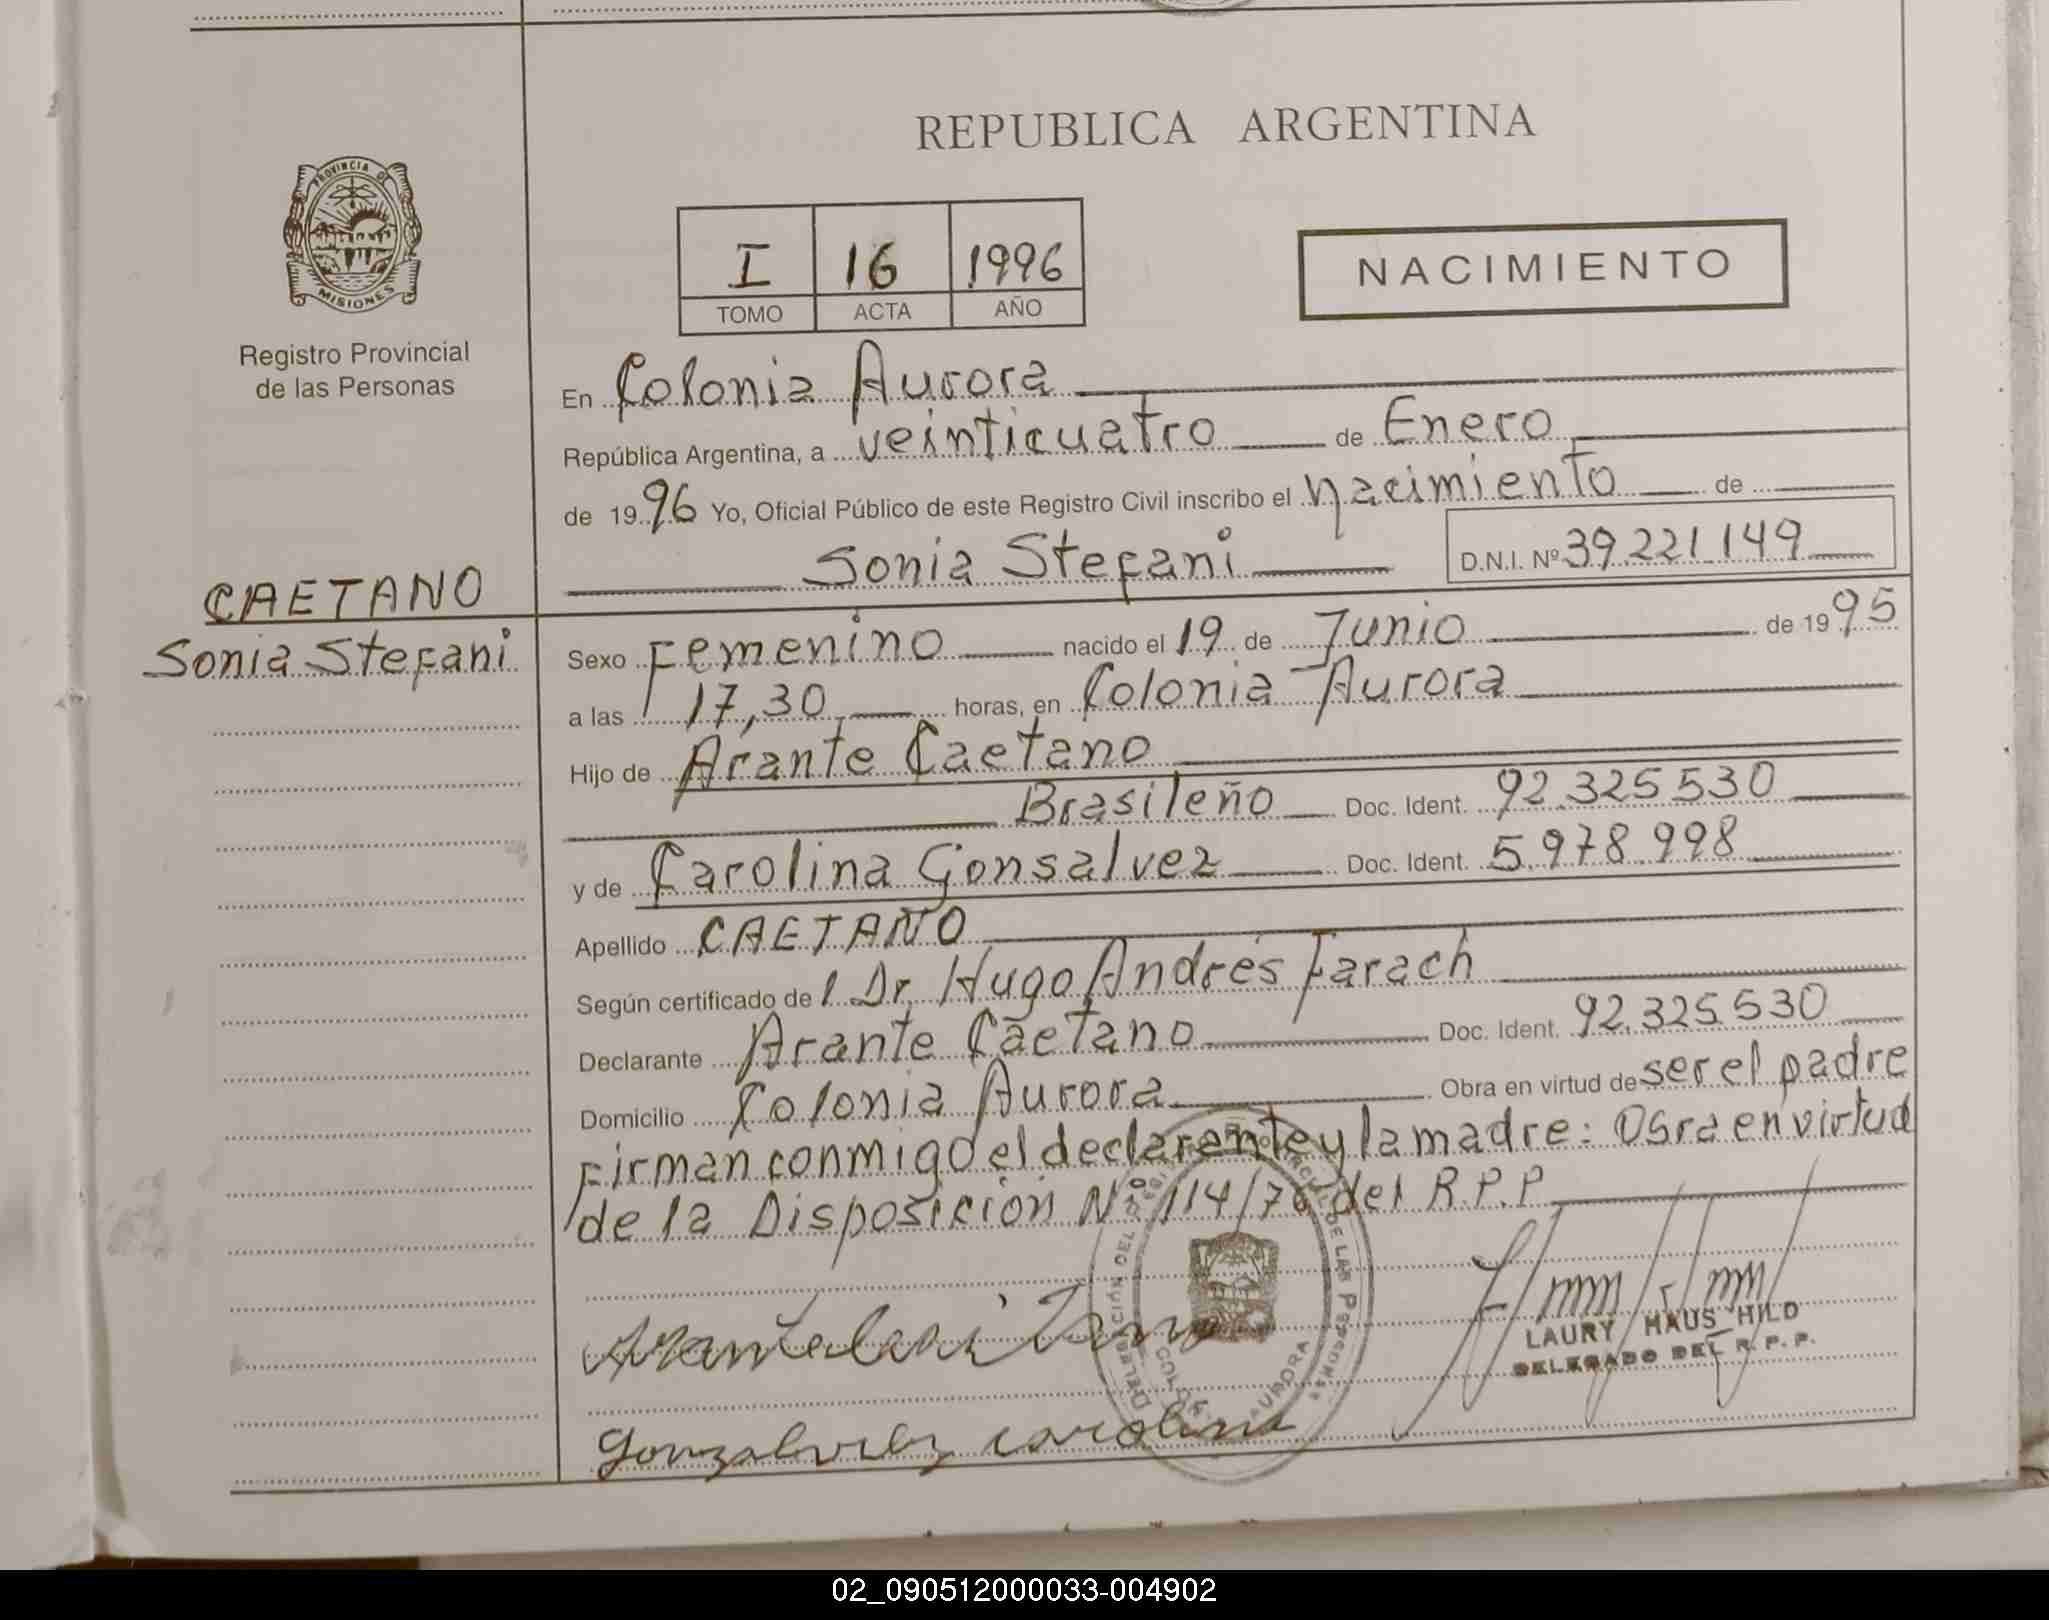 REPUBLICA ARGENTINA
PROVINCIA DE
MISIONES
Registro Provincial
de las Personas
I 16 1996
TOMO ACTA AÑO
NACIMIENTO
En Colonia Aurora
República Argentina, a veinticuatro de Enero
de 1996 Yo, Oficial Público de este Registro Civil inscribo el Nacimiento de
Sonia Stefani D.N.I. Nº 39.221.149
CAETANO
Sonia Stefani
Sexo Femenino nacido el 19 de Junio de 1995
a las 17,30 horas, en Colonia Aurora
Hijo de Arante Caetano
Brasileño Doc. Ident. 92.325.530
y de Carolina Gonsalvez Doc. Ident. 5.978.998
Apellido CAETANO
Según certificado de l Dr. Hugo Andrés Farach
Declarante Arante Caetano Doc. Ident. 92.325.530
Domicilio Colonia Aurora Obra en virtud de ser el padre
Firman conmigo el declarante y la madre: Obra en virtud
de la Disposición Nº 114/76 del R.P.P.
LAURY HAUS HILD
DELEGADO DEL R.P.P.
Gonzalvez Carolina
02_090512000033-004902